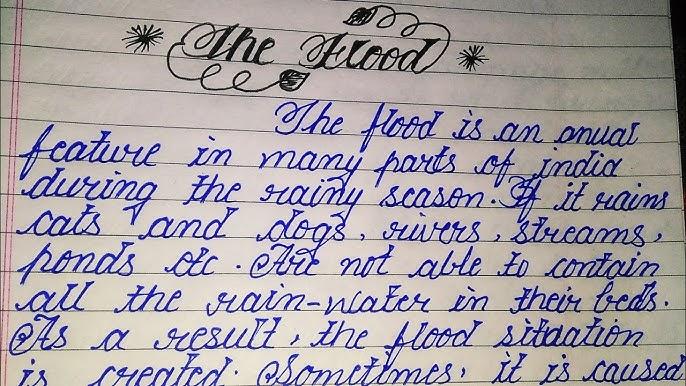 The Flood
The flood is an anual
feature in many parts of india
during the rainy season. If it rains
cats and dogs, rivers, streams,
ponds etc. Are not able to contain
all the rain-water in their beds.
As a result, the flood sitdation
is created. Sometimes, it is caused